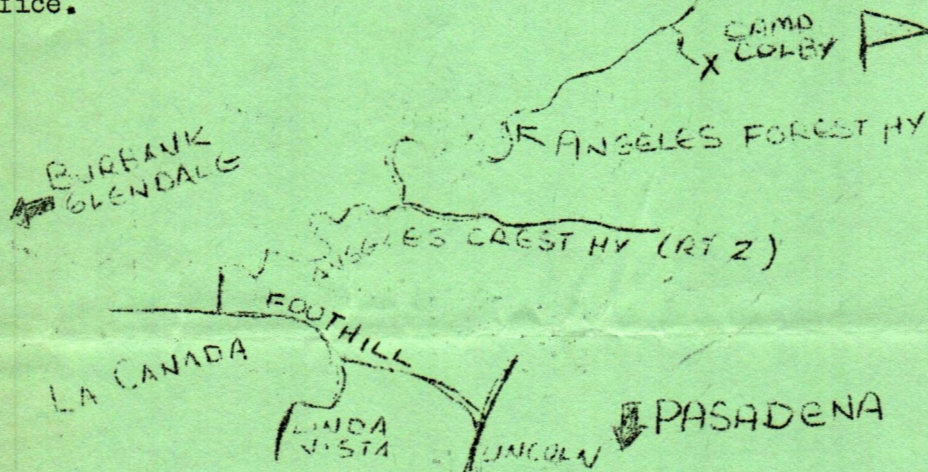 ffice.
CAMP
COLBY
ANGELES FOREST HY
BURBANK
GLENDALE
ANGELES CREST HY (RT 2)
FOOTHILL
LA CANADA
LINDA
VISTA
LINCOLN
PASADENA